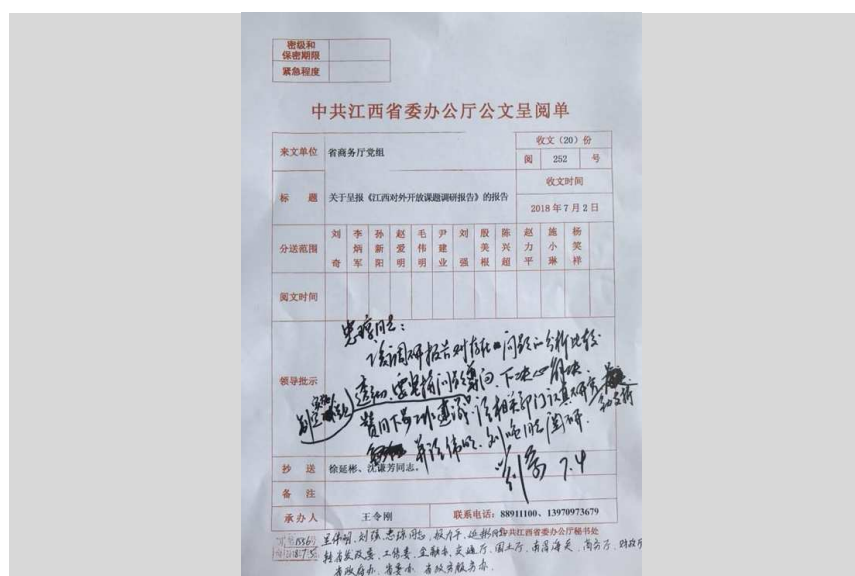 密级和
保密期限
紧急程度
中共江西省委办公厅公文呈阅单
来文单位 省商务厅党组 收文（20）份
阅 252 号
标 题 关于呈报《江西对外开放课题调研报告》的报告 收文时间
2018年7月2日
分送范围 刘奇 李炳军 孙新阳 赵爱明 毛伟明 尹建业 刘强 殷美根 陈兴超 赵力平 施小琳 杨笑祥
阅文时间
领导批示
同志：
该调研报告对存在的问题的分析比较
透彻，要坚持问题导向，下决心解决
赞同下步工作建议，请相关部门认真研究
并请伟明、刘强同志阅研。
刘奇 7.4
抄 送 徐延彬、沈谦芳同志。
备 注
承办人 王令刚 联系电话：88911100、13970973679
中共江西省委办公厅秘书处
呈伟明、刘强、同志、力平、延彬同
省发改委、工信委、金融办、交通厅、国土厅、南昌海关、商务厅、财政厅
省政府办、省委办